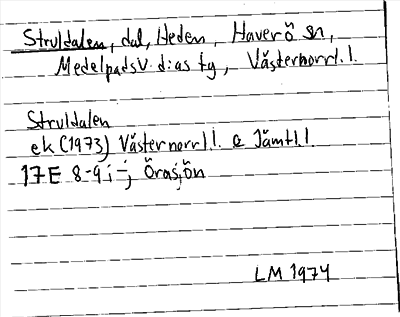 Struldalen, dal, Heden, Haverö sn,
Medelpads V. d:as tg, Västernorrl. l.
Struldalen
ek (1973) Västernorrl l. & Jämtl. l
17E 8-9 i-j Örasjön
LM 1974